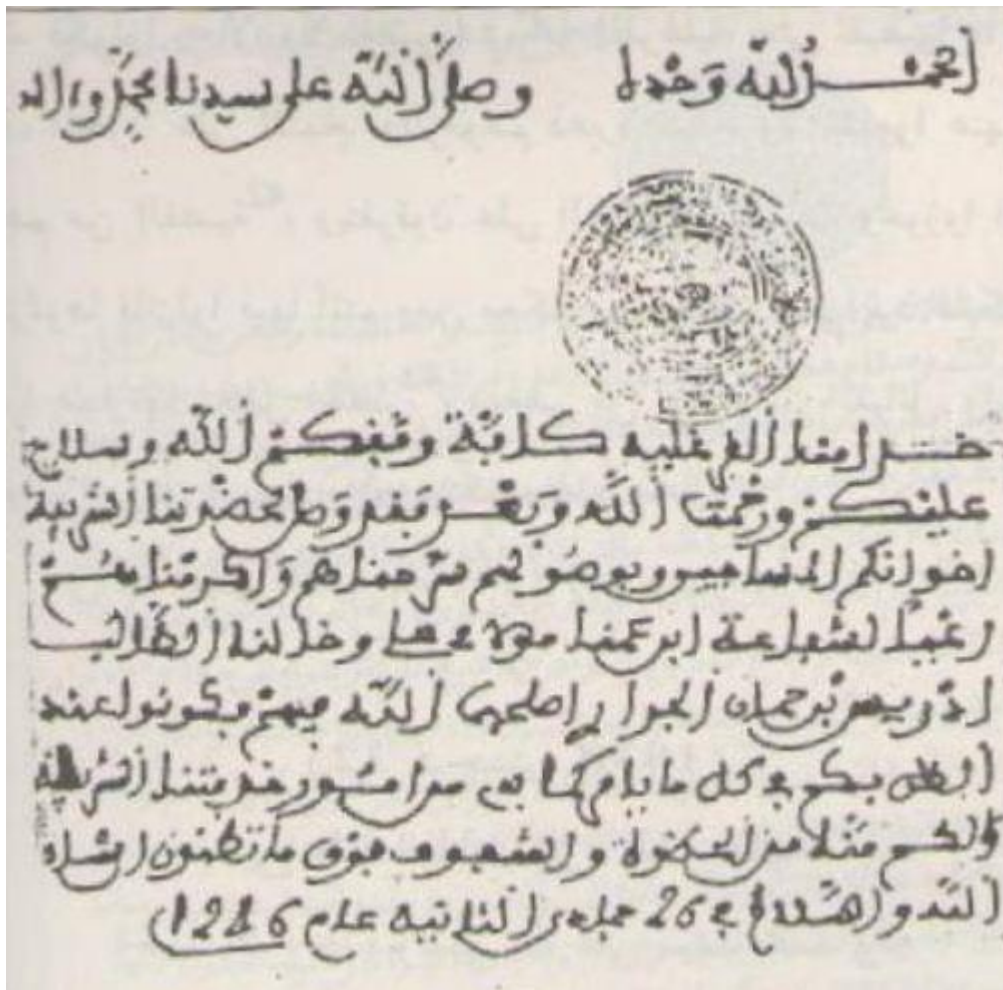 الحمد لله وحده وصلى الله على سيدنا محمد وآله
خدامنا الفرغلية كافة وفقكم الله وسلام
عليكم ورحمت الله وبعد فقد وصل لحضرتنا الشريفة
اخوانكم المساجين وبوصولهم سرحناهم واكرمناهم
رغبا لشفاعة ابن عمنا مولاي وخالنا الطالب
ادريس بن حمان الجرار اصلحهم الله فيهم فكونوا عند
الظن بكم في كل ما يامركم به من امور خدمتنا الشريفة
ولكم منا من الحظوة والشفوف فوق ما تظنون ان شاء
الله والسلام في 26 جمادى الثانية عام 1216